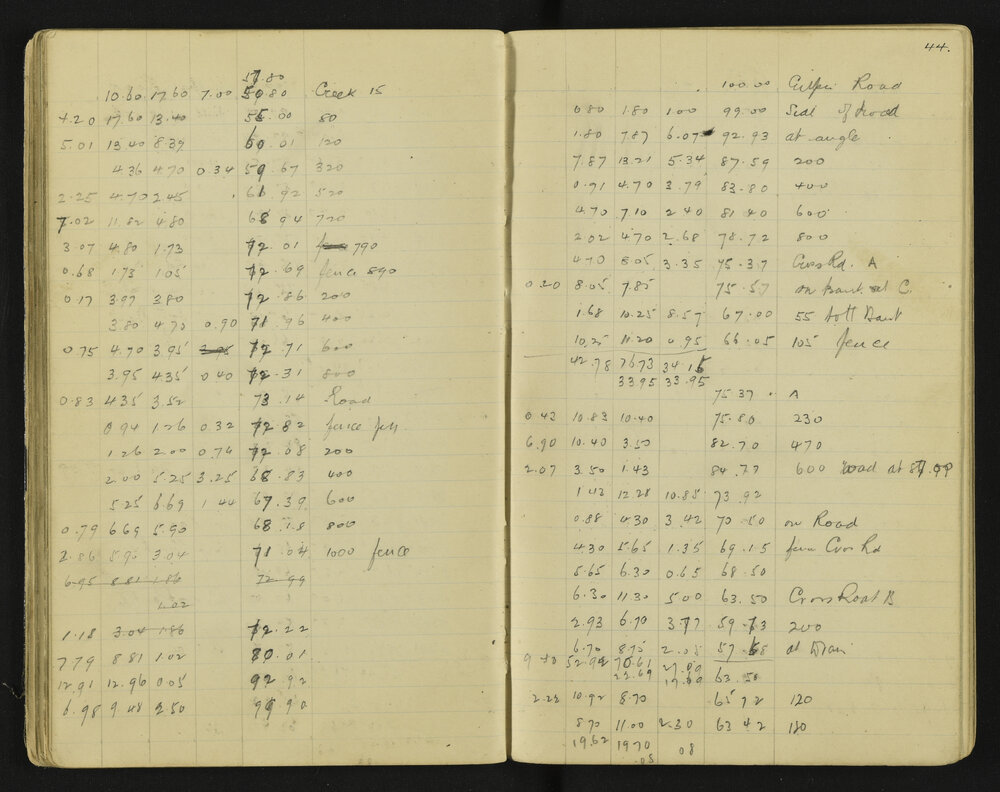 57.80
10.60 17.60 7.00 50.80 Creek 15
4.20 17.60 13.40 55.00 80
5.01 13.40 8.39 60.01 120
4.36 4.70 0.34 59.67 320
2.25 4.70 2.45 61.92 520
7.02 11.82 4.80 68.94 720
3.07 4.80 1.73 72.01 790
0.68 1.73 1.05 72.69 fence 890
0.17 3.97 3.80 72.86 200
3.80 4.70 0.90 71.96 400
0.75 4.70 3.95 72.71 600
3.95 4.35 0.40 72.31 800
0.83 4.35 3.52 73.14 Road
0.94 1.26 0.32 72.82 fence
1.26 2.00 0.74 72.08 200
2.00 5.25 3.25 68.83 400
5.25 6.69 1.44 67.39 600
0.79 6.69 5.90 68.18 800
2.86 5.90 3.04 71.04 1000 fence
6.95 8.81 1.86 72.99
1.02
1.18 3.04 1.86 72.22
7.79 8.81 1.02 80.01
12.91 12.96 0.05 92.92
6.98 9.48 2.50 99.90
44.
100.00 Road
0.80 1.80 1.00 99.00 of road
1.80 7.87 6.07 92.93 at angle
7.87 13.21 5.34 87.59 200
0.91 4.70 3.79 83.80 400
4.70 7.10 2.40 81.40 600
2.02 4.70 2.68 78.72 800
4.70 8.05 3.35 75.37 Cross Rd. A
0.20 8.05 7.85 75.57 on bank at C.
1.68 10.25 8.57 67.00 55 bott Bank
10.25 11.20 0.95 66.05 105 fence
42.78 76.73 34.15
33.95 33.95
75.37 . A
0.43 10.83 10.40 75.80 230
6.90 10.40 3.50 82.70 470
2.07 3.50 1.43 84.77 600 road at
1.42 12.28 10.85 73.92
0.88 4.30 3.42 70.50 on Road
4.30 5.65 1.35 69.15 Cross Rd
5.65 6.30 0.65 68.50
6.30 11.30 5.00 63.50 Cross Road B
2.93 6.70 3.77 59.73 200
6.70 8.75 2.05 57.68 at Drain
9.40 52.92 70.61 27.00
22.69 63.50
2.22 10.92 8.70 65.72 120
8.70 11.00 2.30 63.42 180
19.62 19.70 08
.08